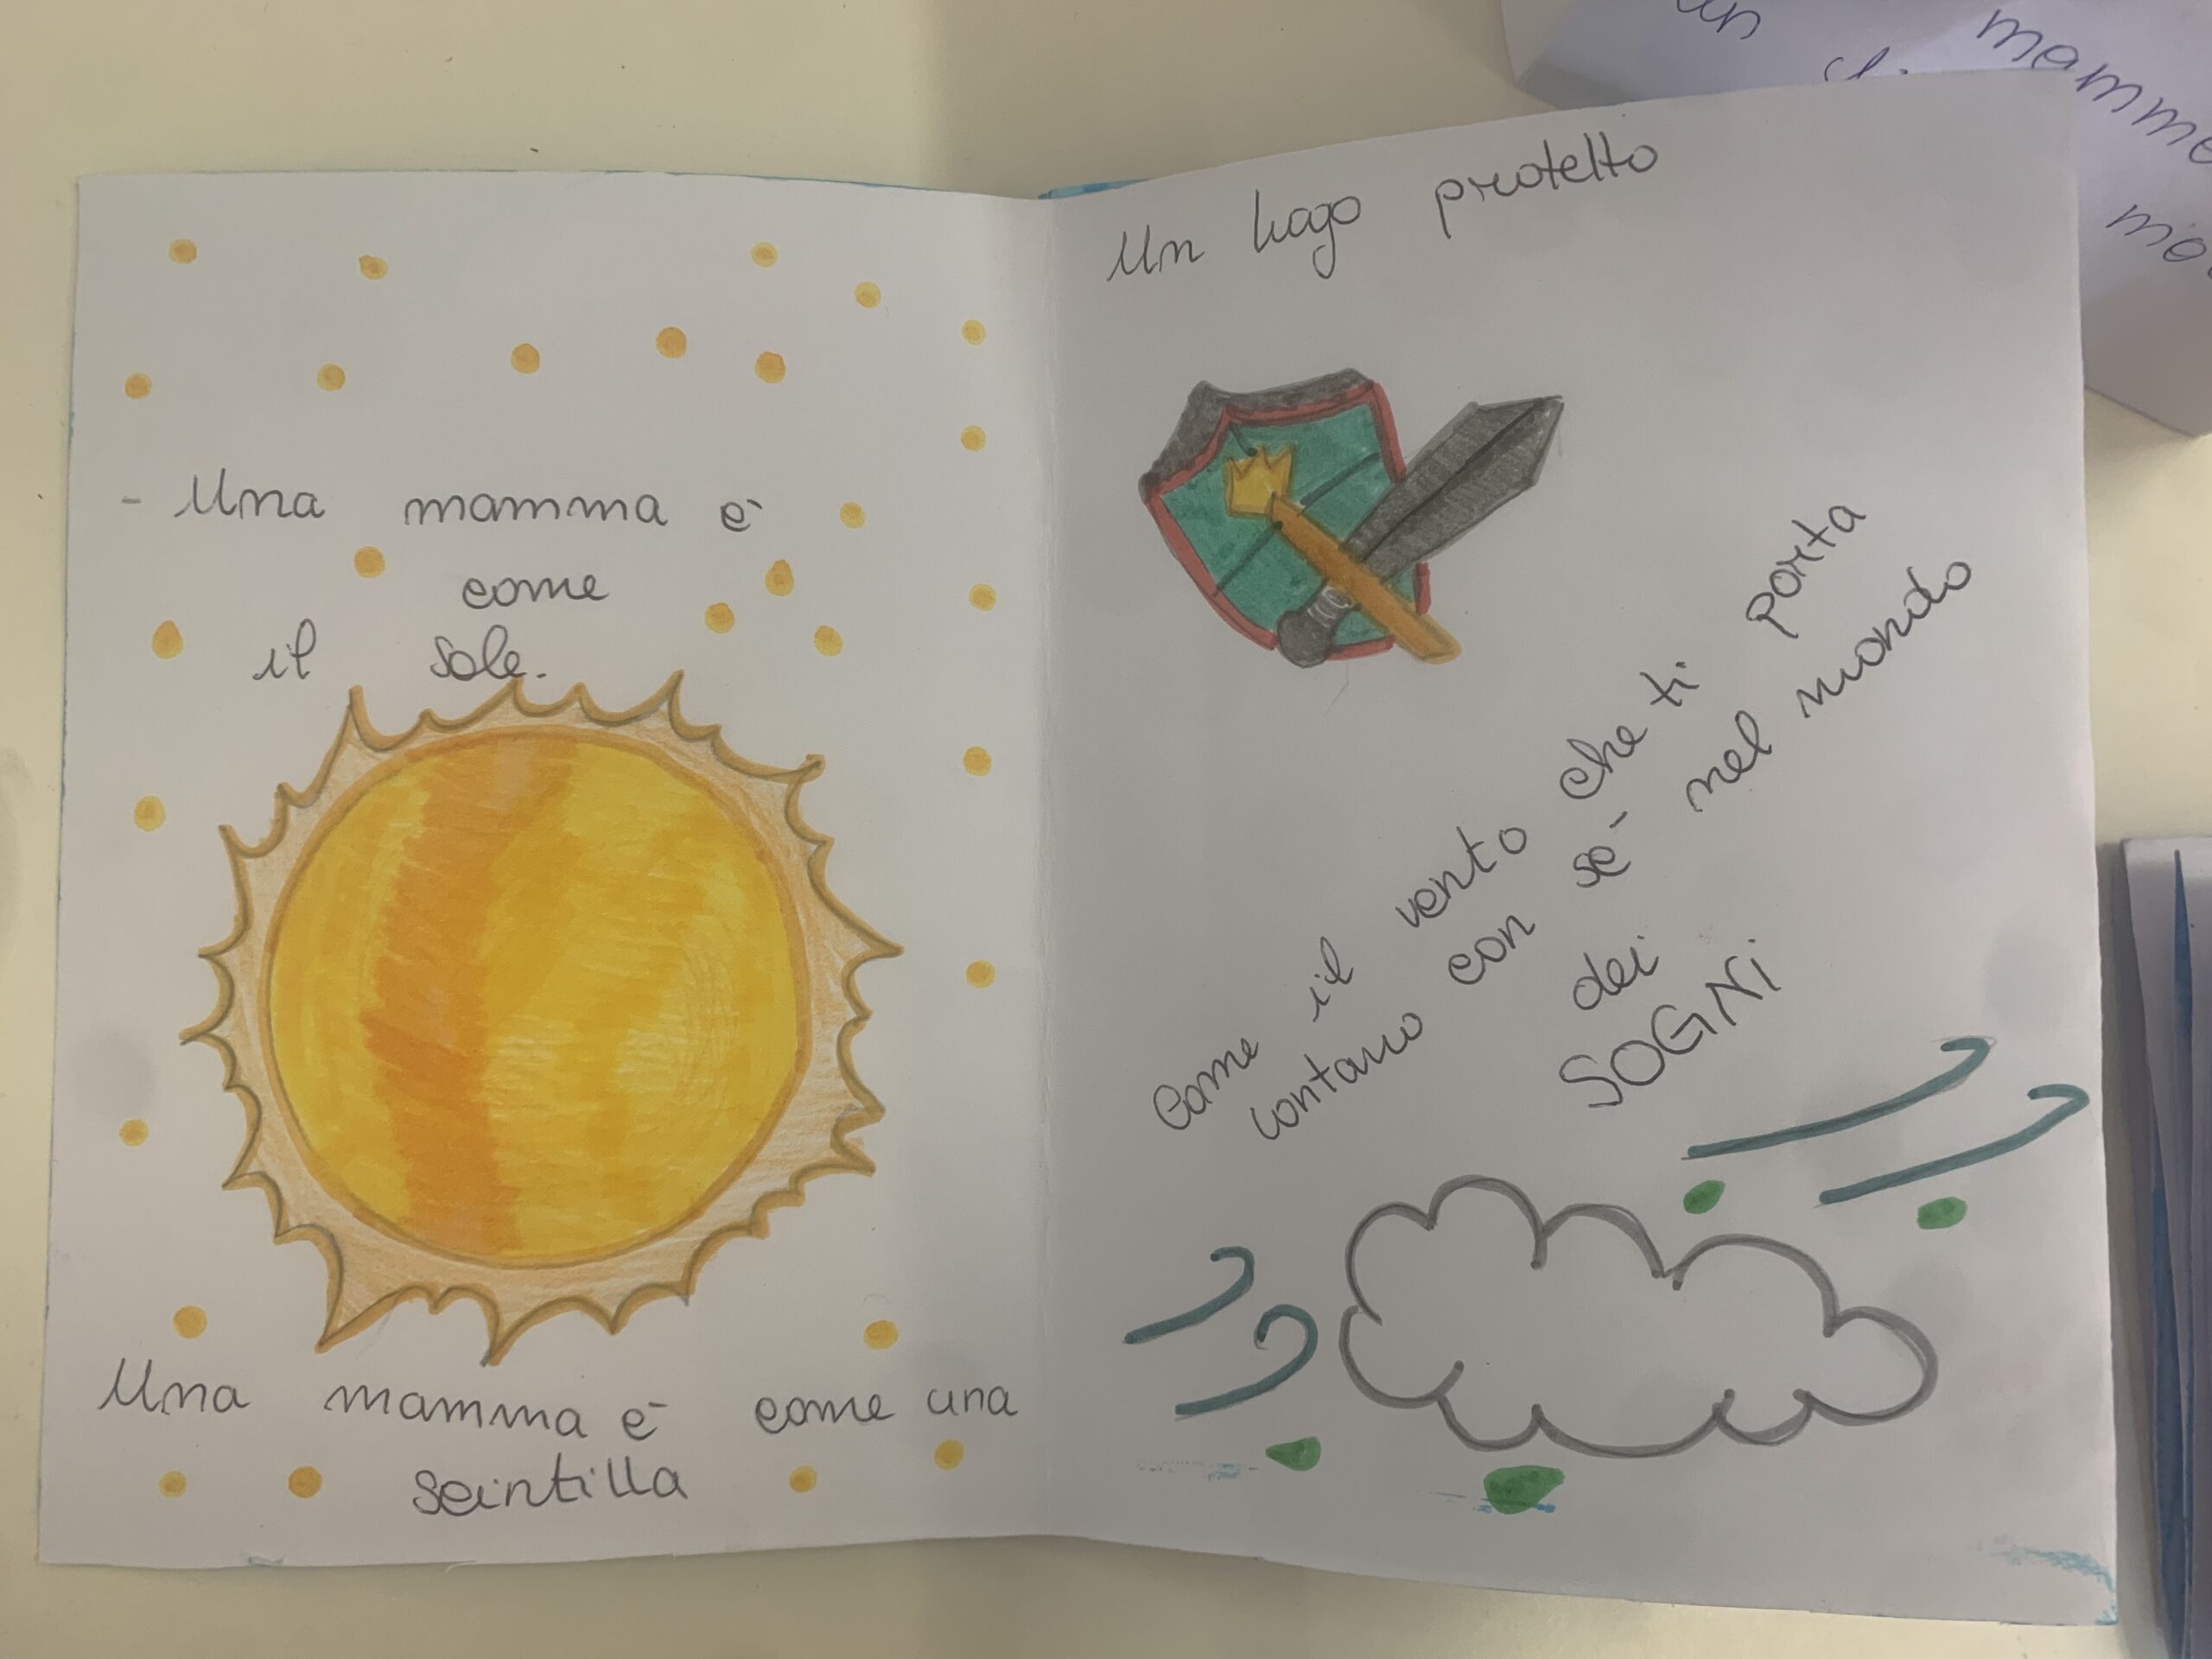 - Una mamma è
come
il sole.
Una mamma è come una
scintilla
Un luogo protetto
Come il vento che ti porta
lontano con sé nel mondo
dei
SOGNi
un
mamme